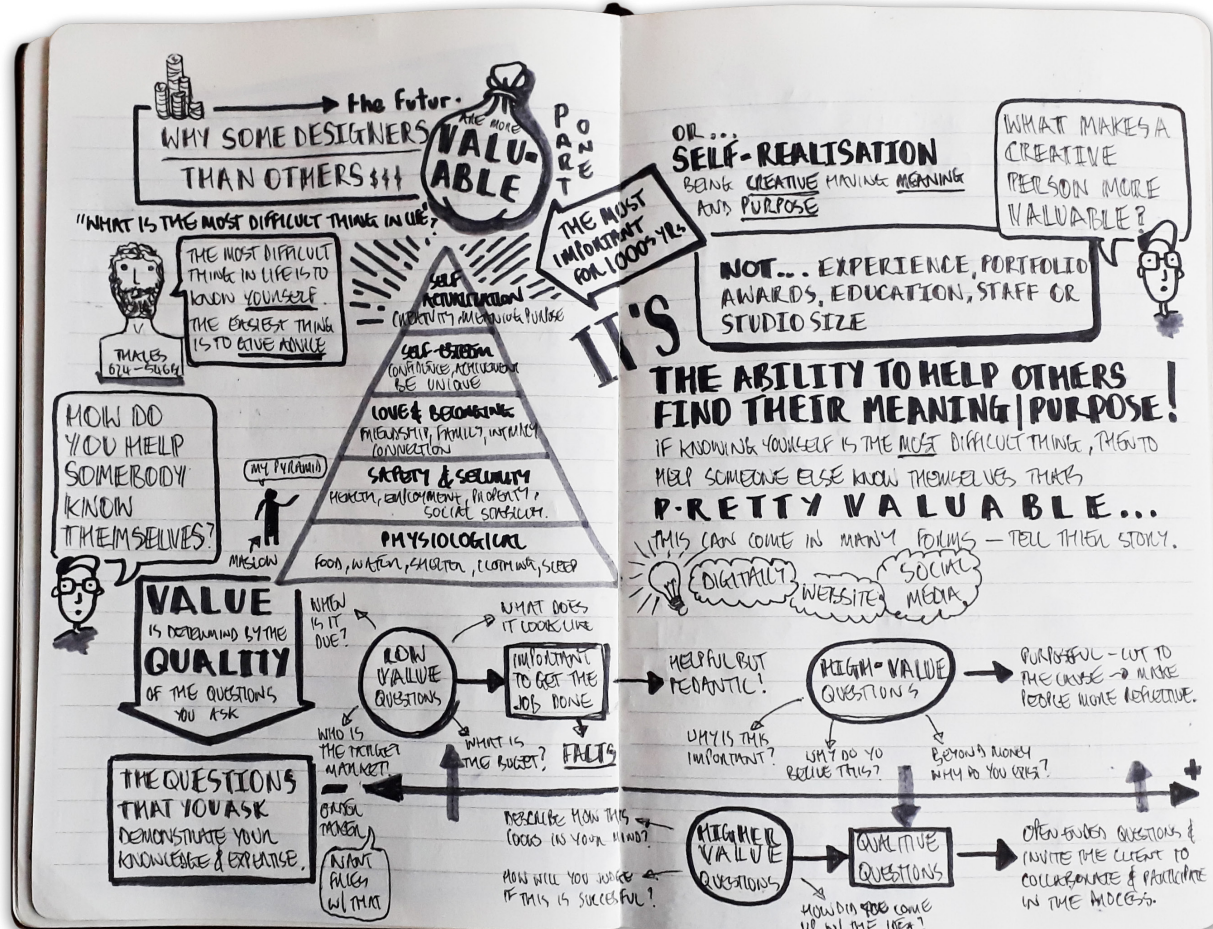 the Futur.
WHY SOME DESIGNERS
ARE MORE
VALU-
ABLE
THAN OTHERS $$$
PART
ONE
"WHAT IS THE MOST DIFFICULT THING IN LIFE?"
THE MOST DIFFICULT
THING IN LIFE IS TO
KNOW YOURSELF.
THE EASIEST THING
IS TO GIVE ADVICE
THALES
THE MOST
IMPORTANT
FOR 1000S YRS
SELF
ACTUALISATION
CREATIVITY, MEANING PURPOSE
SELF-ESTEEM
CONFIDENCE, ACHIEVEMENT
BE UNIQUE
LOVE & BELONGING
FRIENDSHIP, FAMILY, INTIMACY
CONNECTION
SAFETY & SECURITY
HEALTH, EMPLOYMENT, PROPERTY,
SOCIAL STABILITY.
PHYSIOLOGICAL
FOOD, WATER, SHELTER, CLOTHING, SLEEP
MY PYRAMID
MASLOW
HOW DO
YOU HELP
SOMEBODY
KNOW
THEMSELVES?
VALUE
IS DETERMIND BY THE
QUALITY
OF THE QUESTIONS
YOU ASK
THE QUESTIONS
THAT YOU ASK
DEMONSTRATE YOUR
KNOWLEDGE & EXPERTISE.
WHEN
IS IT
DUE?
WHAT DOES
IT LOOK LIKE
LOW
VALUE
QUESTIONS
IMPORTANT
TO GET THE
JOB DONE
WHO IS
THE TARGET
MARKET?
WHAT IS
THE BUGET?
FACTS
-
ORDER
TAKER
WANT
FRIES
W/ THAT
OR...
SELF-REALISATION
BEING CREATIVE HAVING MEANING
AND PURPOSE
WHAT MAKES A
CREATIVE
PERSON MORE
VALUABLE?
NOT... EXPERIENCE, PORTFOLIO
AWARDS, EDUCATION, STAFF OR
STUDIO SIZE
IT'S
THE ABILITY TO HELP OTHERS
FIND THEIR MEANING|PURPOSE!
IF KNOWING YOURSELF IS THE MOST DIFFICULT THING, THEN TO
HELP SOMEONE ELSE KNOW THEMSELVES THATS
P.RETTY VALUABLE...
THIS CAN COME IN MANY FORMS — TELL THIER STORY.
DIGITALLY
WEBSITE
SOCIAL
MEDIA
HELPFUL BUT
PEDANTIC!
HIGH-VALUE
QUESTIONS
PURPOSEFUL - CUT TO
THE CAUSE → MAKE
PEOPLE MORE REFLECTIVE.
WHY IS THIS
IMPORTANT?
WHY DO YO
BELIVE THIS?
BEYOND MONEY
WHY DO YOU EXIST?
+
DESCRIBE HOW THIS
LOOKS IN YOUR MIND?
HOW WILL YOU JUDGE
IF THIS IS SUCCESFUL?
HIGHER
VALUE
QUESTIONS
QUALITIVE
QUESTIONS
OPEN ENDED QUESTIONS &
INVITE THE CLIENT TO
COLLABORATE & PARTICIPATE
IN THE PROCESS.
HOW DID YOU COME
UP W/ THE IDEA?